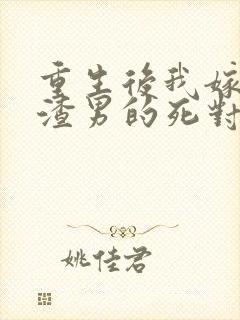 重生後我嫁
渣男的死對
姚佳君